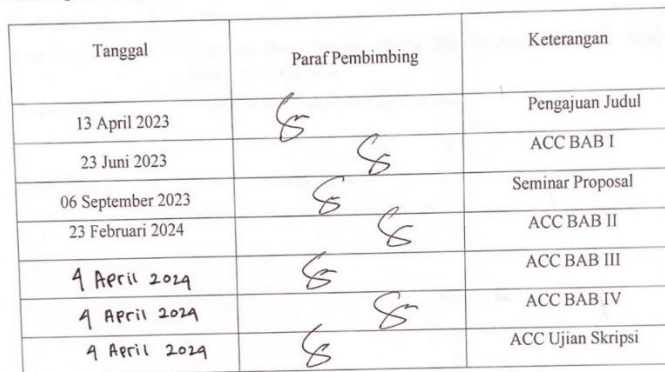 Tanggal Paraf Pembimbing Keterangan
13 April 2023 Pengajuan Judul
23 Juni 2023 ACC BAB I
06 September 2023 Seminar Proposal
23 Februari 2024 ACC BAB II
4 April 2024 ACC BAB III
4 April 2024 ACC BAB IV
4 April 2024 ACC Ujian Skripsi